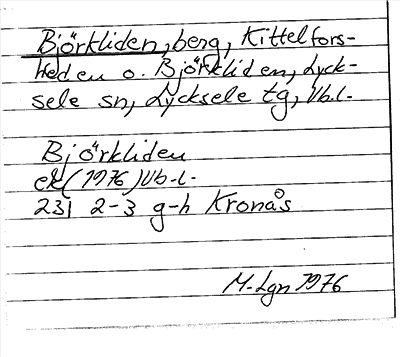 Björkliden, berg, Kittelfors-
heden o. Björkliden, Lyck-
sele sn, Lycksele tg, Vb.l.
Björkliden
ek (1976) Vb.l.
23J 2-3 g-h Kronås
M. Lgn 1976